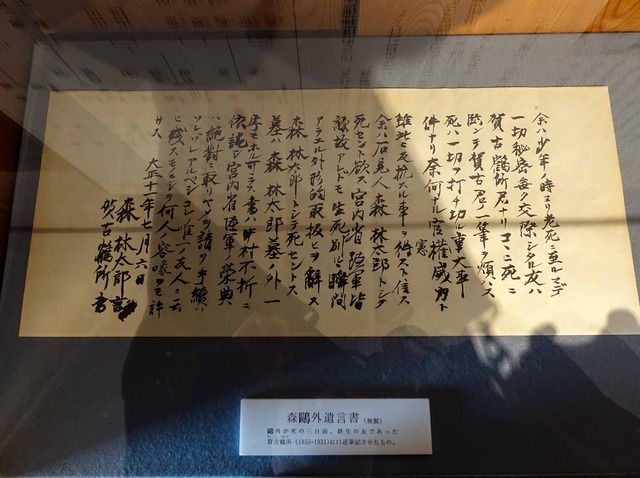 余ハ少年ノ時ヨリ老死ニ至ルマデ
一切秘密無ク交際シタル友ハ
賀古鶴所君ナリコヽニ死ニ
臨ンテ賀古君ノ一筆ヲ煩ハス
死ハ一切ヲ打チ切ル重大事
件ナリ奈何ナル官權威力ト
憲
雖此ニ反抗スル事ヲ得スト信ス
余ハ石見人森林太郎トシテ
死セント欲ス宮内省陸軍皆
縁故アレドモ生死別ルヽ瞬間
アラユル外形的取扱ヒヲ辭ス
森林太郎トシテ死セントス
墓ハ森林太郎墓ノ外一
字モホル可ラス書ハ中村不折ニ
依託シ宮内省陸軍ノ榮典
ハ絶對ニ取リヤメヲ請フ手續ハ
ソレゾレアルベシコレ唯一ノ友人ニ云
ヒ殘スモノニシテ何人ノ容喙ヲモ許
サス 大正十一年七月六日
森林太郎言
賀古鶴所書
森鷗外遺言書（複製）
鷗外が死の三日前、終生の友であった
賀古鶴所（1855-1931）に口述筆記させたもの。